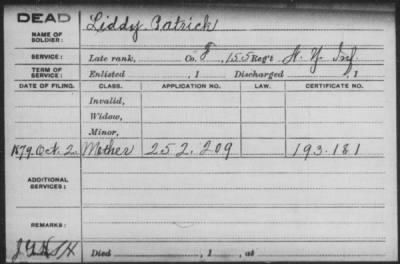 DEAD
NAME OF SOLDIER: Liddy, Patrick
SERVICE: Late rank, Co. F, 155 Reg't N. Y. Inf.
TERM OF SERVICE: Enlisted , 1 Discharged , 1
DATE OF FILING. CLASS. APPLICATION NO. LAW. CERTIFICATE NO.
Invalid,
Widow,
Minor,
1879, Oct. 2. Mother 252.209 193.181
ADDITIONAL SERVICES:
REMARKS:
Died , 1 , at